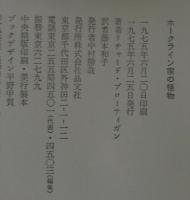 ホークライン家の怪物
一九七五年六月二〇日印刷
一九七五年六月二五日発行
著者リチャード・ブローティガン
訳者藤本和子
発行者中村勝哉
発行所株式会社晶文社
東京都千代田区外神田二-一-一二
電話東京二五五局四五〇一(代表)・四五〇三(編集)
振替東京六-二七九九
中央精版印刷・美行製本
ブックデザイン平野甲賀